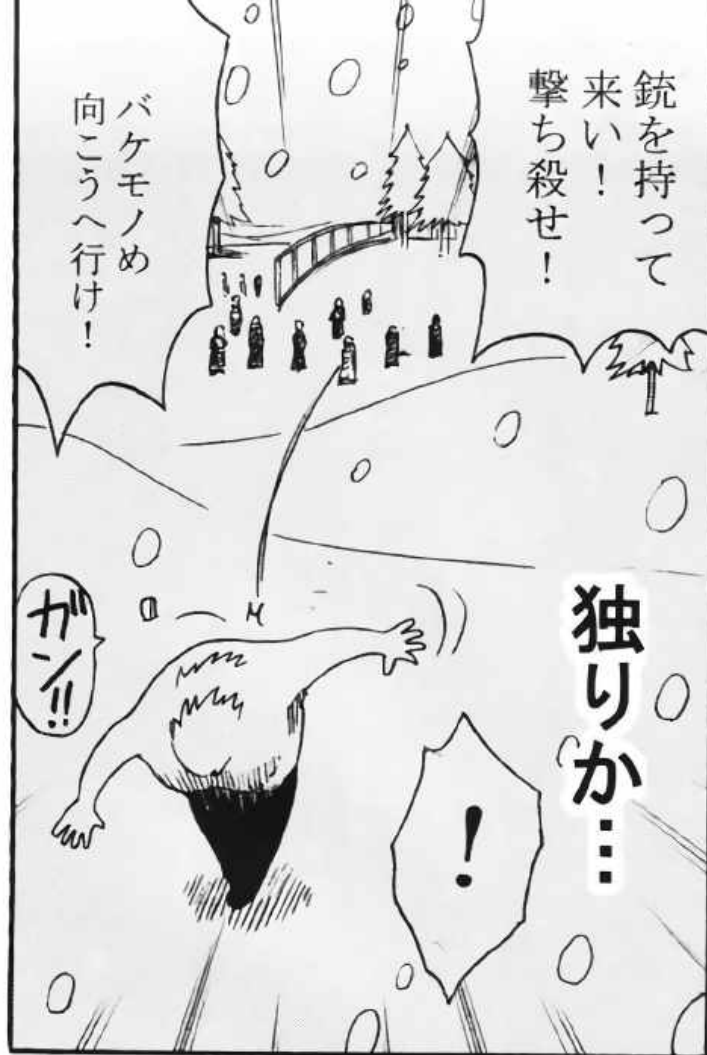 銃を持って
来い！
撃ち殺せ！
バケモノめ
向こうへ行け！
独りか…
！
ガン!!